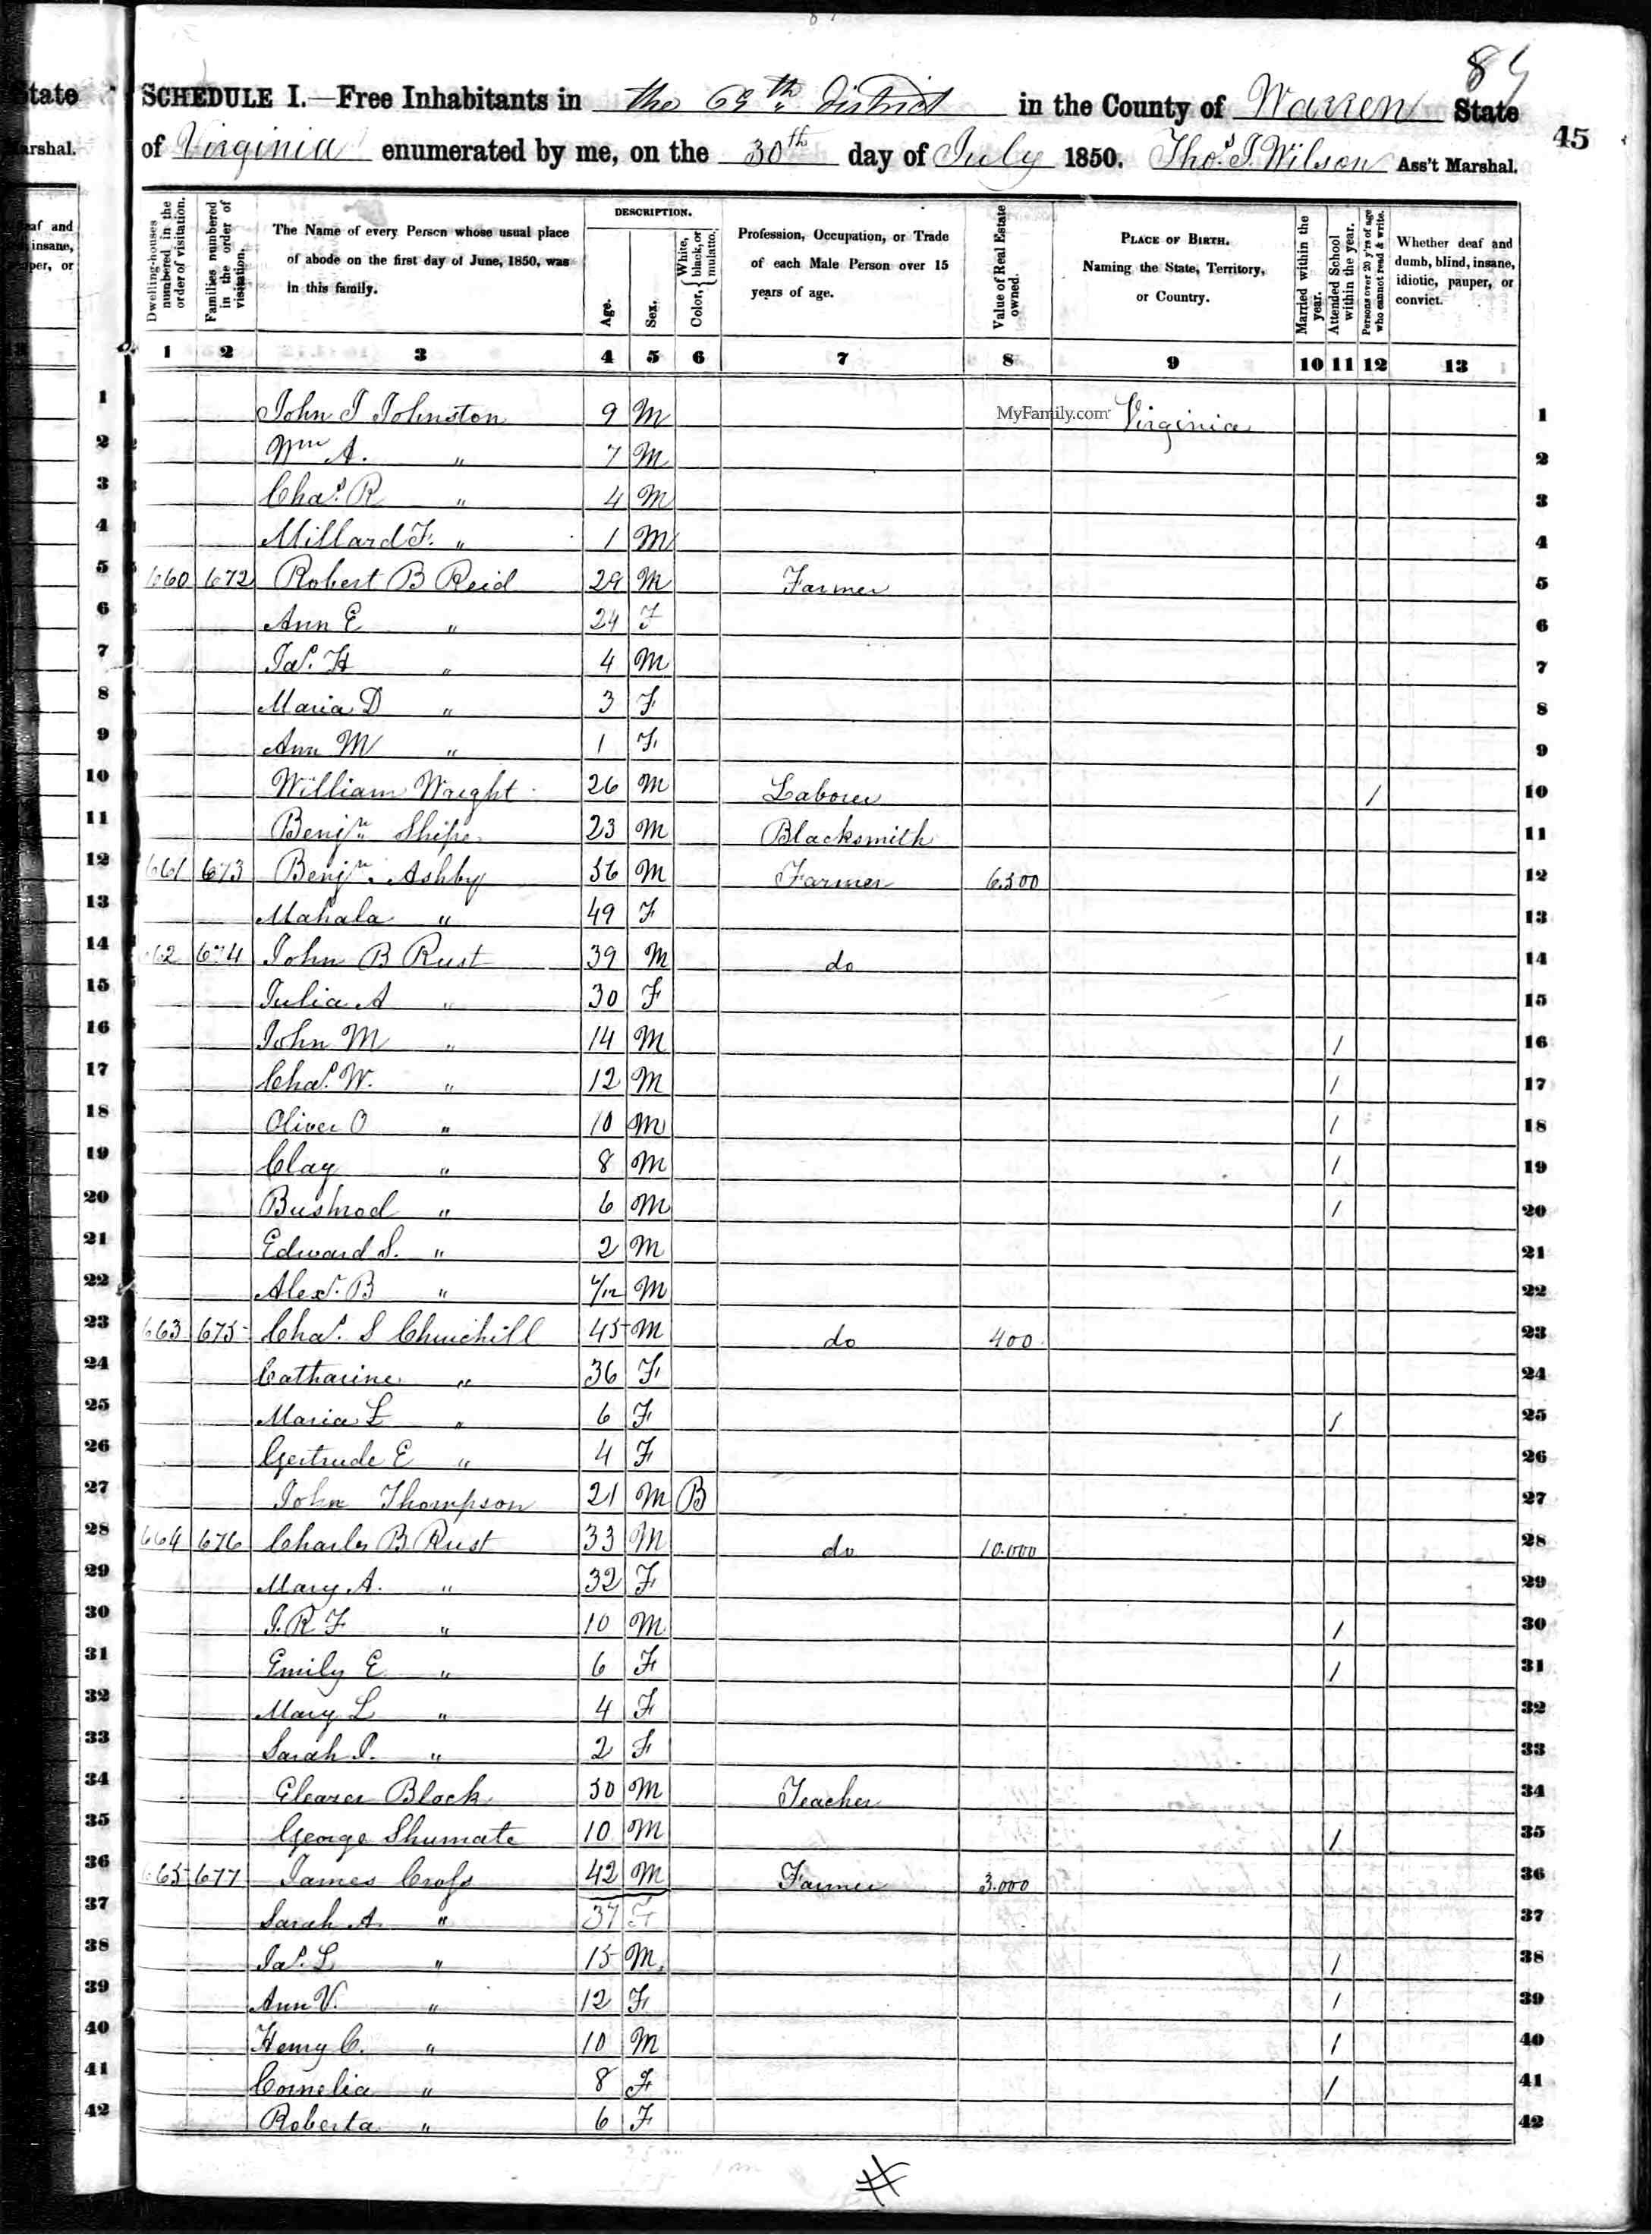 84
SCHEDULE I.—Free Inhabitants in the 69th district in the County of Warren State
of Virginia enumerated by me, on the 30th day of July 1850. Thos. J. Wilson Ass't Marshal.
45
State
arshal.
Dwelling-houses numbered in the order of visitation.
Families numbered in the order of visitation.
The Name of every Person whose usual place of abode on the first day of June, 1850, was in this family.
DESCRIPTION.
Age.
Sex.
Color, { White, black, or mulatto.
Profession, Occupation, or Trade of each Male Person over 15 years of age.
Value of Real Estate owned.
PLACE OF BIRTH. Naming the State, Territory, or Country.
Married within the year.
Attended School within the year.
Persons over 20 y'rs of age who cannot read & write.
Whether deaf and dumb, blind, insane, idiotic, pauper, or convict.
1 2 3 4 5 6 7 8 9 10 11 12 13
1 John J Johnston 9 M MyFamily.com Virginia 1
2 Wm A. " 7 M 2
3 Chas. R " 4 M 3
4 Millard F. " 1 M 4
5 660 672 Robert B Reid 29 M Farmer 5
6 Ann E " 24 F 6
7 Jas. H " 4 M 7
8 Maria D " 3 F 8
9 Ann M " 1 F 9
10 William Wright 26 M Laborer / 10
11 Benjn Shipe 23 M Blacksmith 11
12 661 673 Benjn. Ashby 56 M Farmer 6.500 12
13 Mahala " 49 F 13
14 62 674 John B Rust 39 M do 14
15 Julia A " 30 F 15
16 John M " 14 M / 16
17 Chas. W. " 12 M / 17
18 Oliver O " 10 M / 18
19 Clay " 8 M / 19
20 Bushrod " 6 M / 20
21 Edward S. " 2 M 21
22 Alex. B " M 22
23 663 675 Chas. S Churchill 45 M do 400 23
24 Catharine " 36 F 24
25 Maria L " 6 F / 25
26 Gertrude E " 4 F 26
27 John Thompson 21 M B 27
28 664 676 Charles B Rust 33 M do 10.000 28
29 Mary A. " 32 F 29
30 J. R F " 10 M / 30
31 Emily E " 6 F / 31
32 Mary L " 4 F 32
33 Sarah J. " 2 F 33
34 Block 30 M Teacher 34
35 George Shumate 10 M / 35
36 665 677 James Cross 42 M Farmer 3.000 36
37 Sarah A " 37 F 37
38 Jas. L " 15 M / 38
39 Ann V. " 12 F / 39
40 Henry C. " 10 M / 40
41 Cornelia " 8 F / 41
42 Roberta " 6 F 42